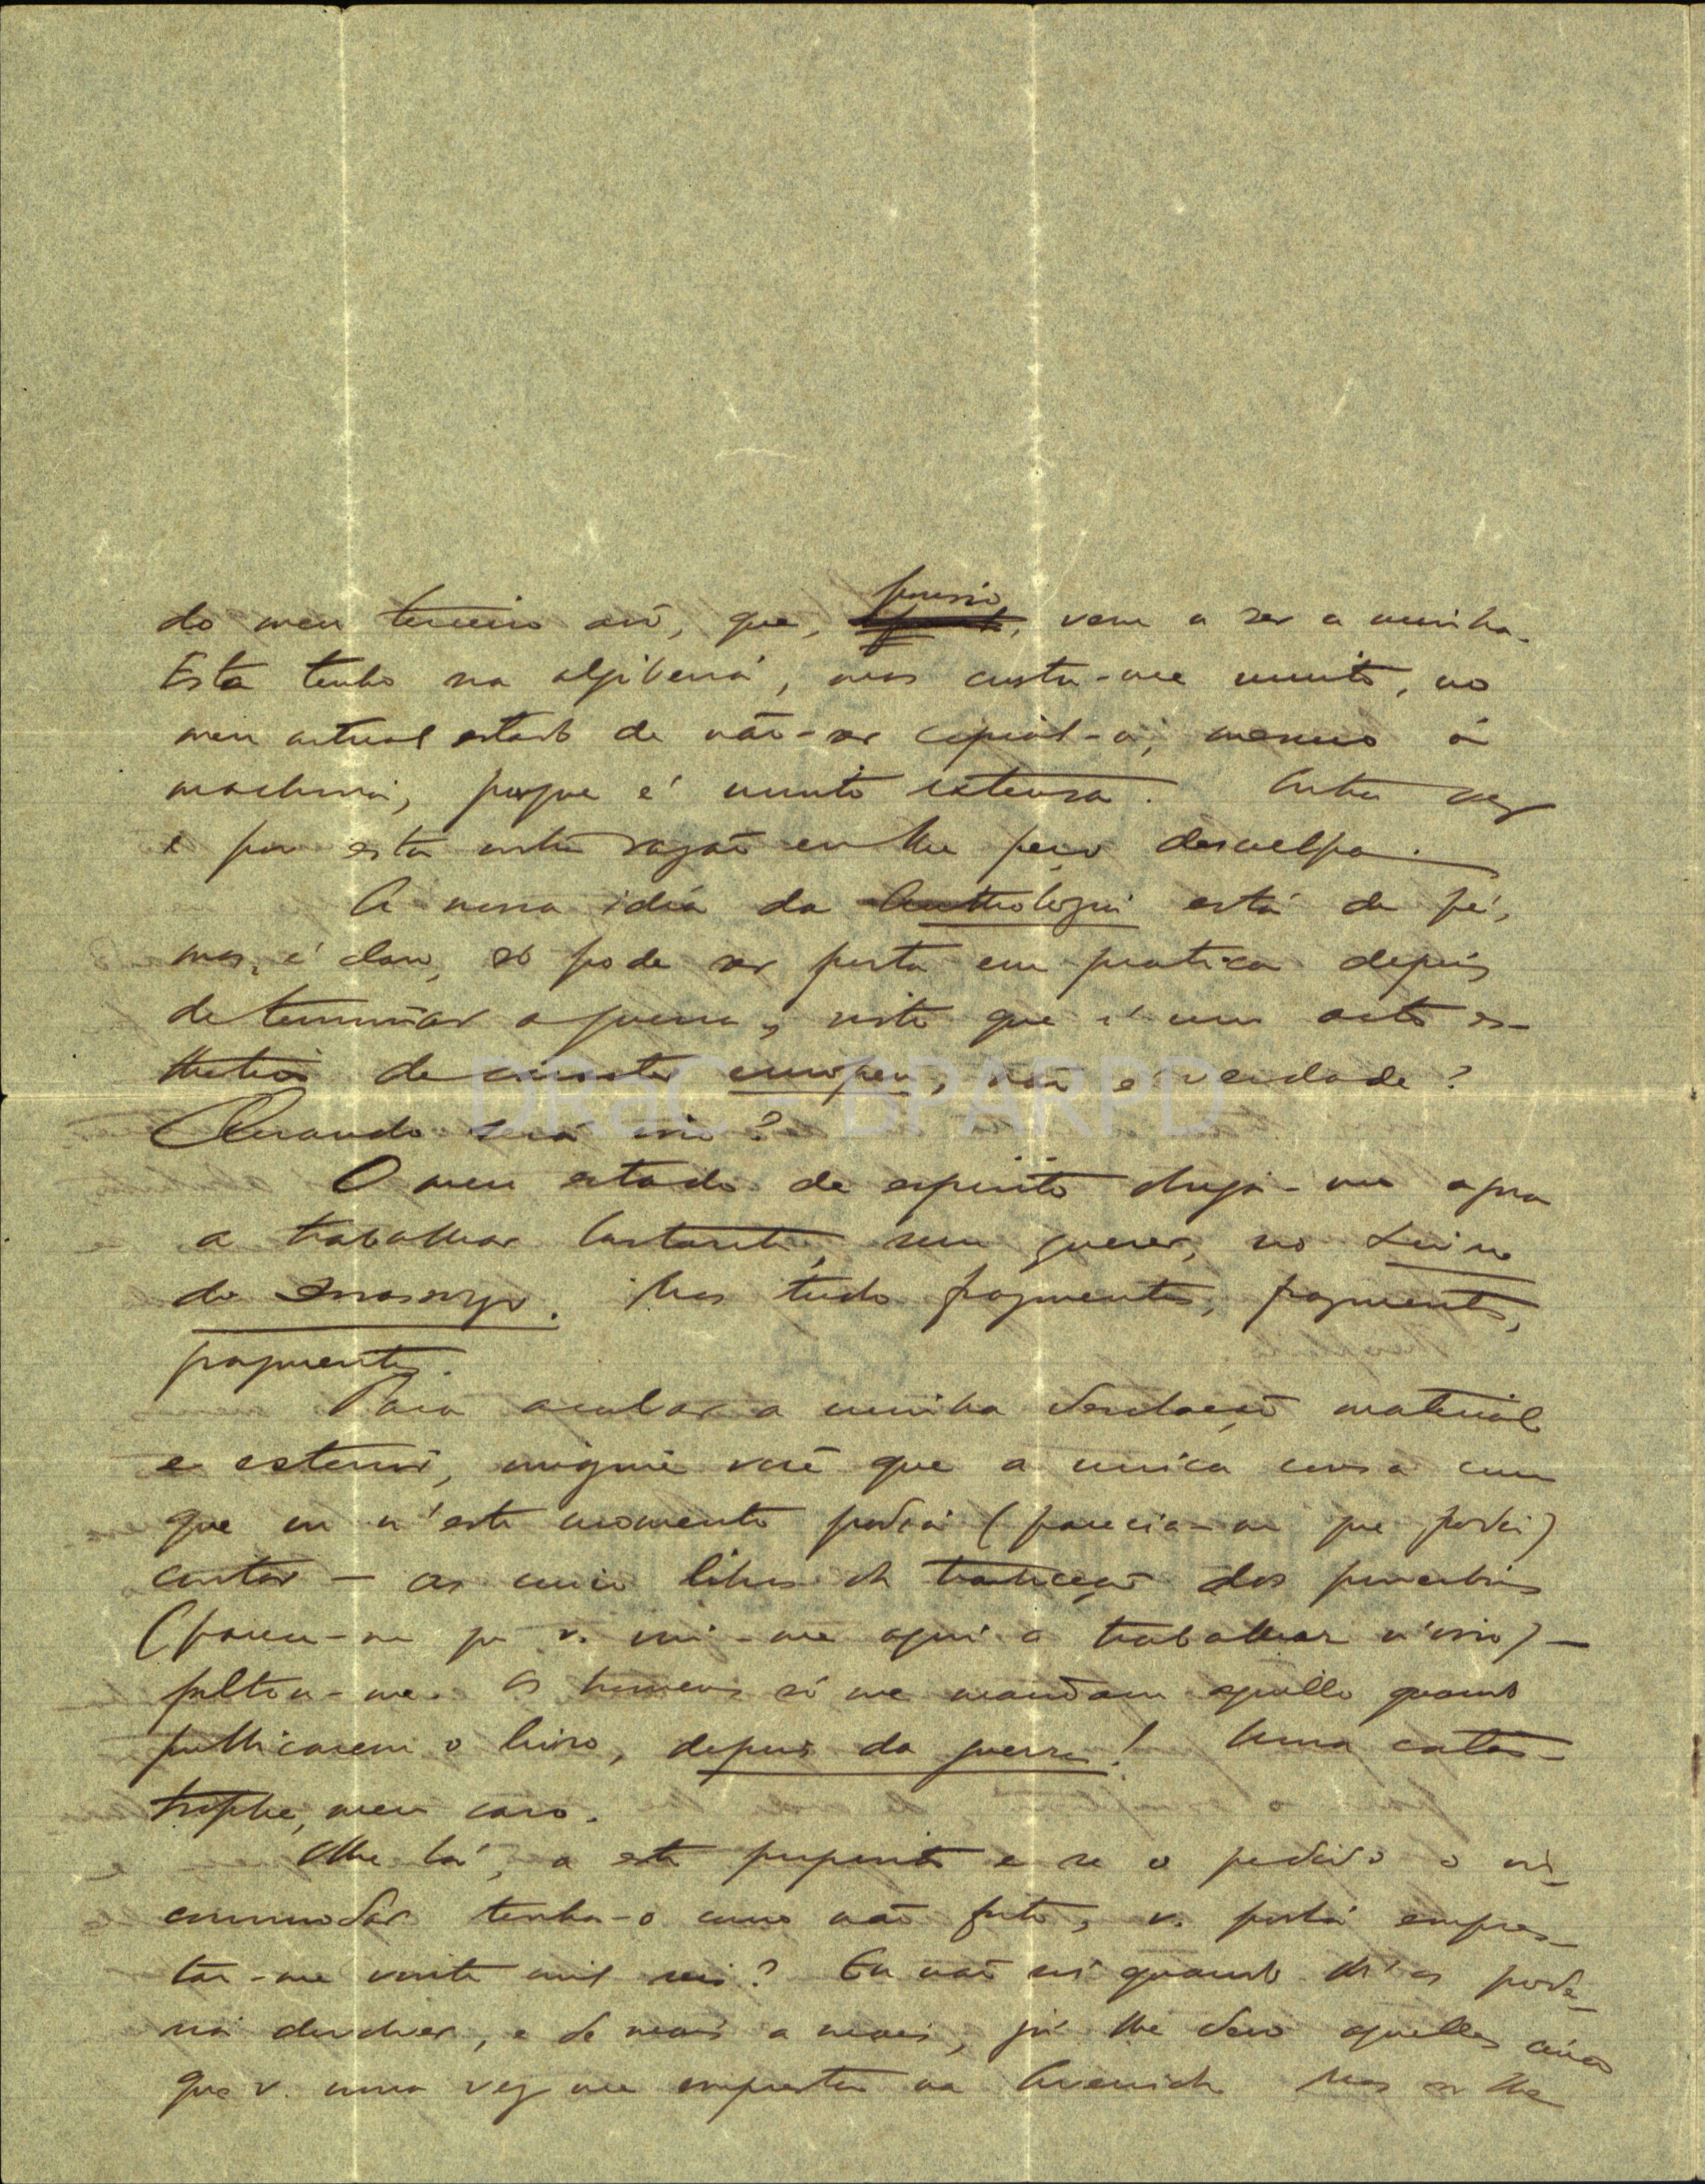 do meu terceiro avô, que, por isso, vem a ser a minha.
Esta tenho na algibeira, mas custa-me muito, no
meu actual estado de não-ser copial-a, mesmo á
machina, porque é muito extensa. Outra vez
e por esta outra razão eu lhe peço desculpa.
A nossa idéa da Anthologia está de pé,
mas, é claro, só pode ser posta em pratica depois
de terminar a guerra, visto que é um acto es-
thetico de caracter europeu, não é verdade?
Quando será isso?
O meu estado de espirito obriga-me agora
a trabalhar bastante, sem querer, no Livro
do Desassossego. Mas tudo fragmentos, fragmentos,
fragmentos.
Para acabar a minha desolação material
e externa, imagine você que a unica cousa com
que eu n'este momento podia (parecia-me que podia)
contar — as cinco libras da traducção dos proverbios
(parece-me que v. viu-me aqui a trabalhar n'isso) —
faltou-me. Os homens só me mandam aquillo quando
publicarem o livro, depois da guerra! Uma catas-
trophe, meu caro.
Olhe lá, a este proposito e se o pedido o in-
commodar tenha-o como não feito, v. podia empres-
tar-me vinte mil reis? Eu não sei quando lh'os pode-
rei devolver, e de mais a mais, já lhe devo aquelles cinco
que v. uma vez me emprestou na Avenida. Mas se lhe
DRaC BPARPD